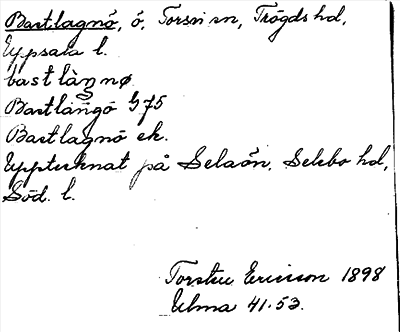 Bastlagnö, ö, Torsv sn, Trögds hd,
Uppsala l.
bast làgnø
Bastlängö G75
Bastlagnö ek.
Upptecknat på Selaön, Selebo hd,
Söd. l.
Torsten Ericsson 1898
Ulma 41.53.